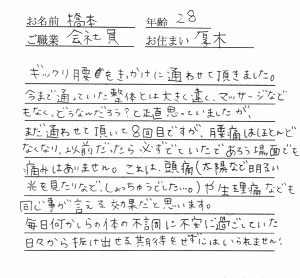 お名前 橋本 年齢 28
ご職業 会社員 お住まい 厚木
ギックリ腰をきっかけに通わせて頂きました。
今まで通っていた整体とは大きく違く、マッサージなど
もなく、どうなんだろう？と正直思っていましたが、
まだ通わせて頂いて8回目ですが、腰痛はほとんど
なくなり、以前だったら必ずでていたであろう場面でも
痛みはありません。これは、頭痛(太陽など明るい
光を見たりなど、しょっちゅうでした…。)や生理痛なども
同じ事が言える効果だと思います。
毎日何かしらの体の不調に不安に過ごしていた
日々から抜け出せる期待をせずにはいられません!